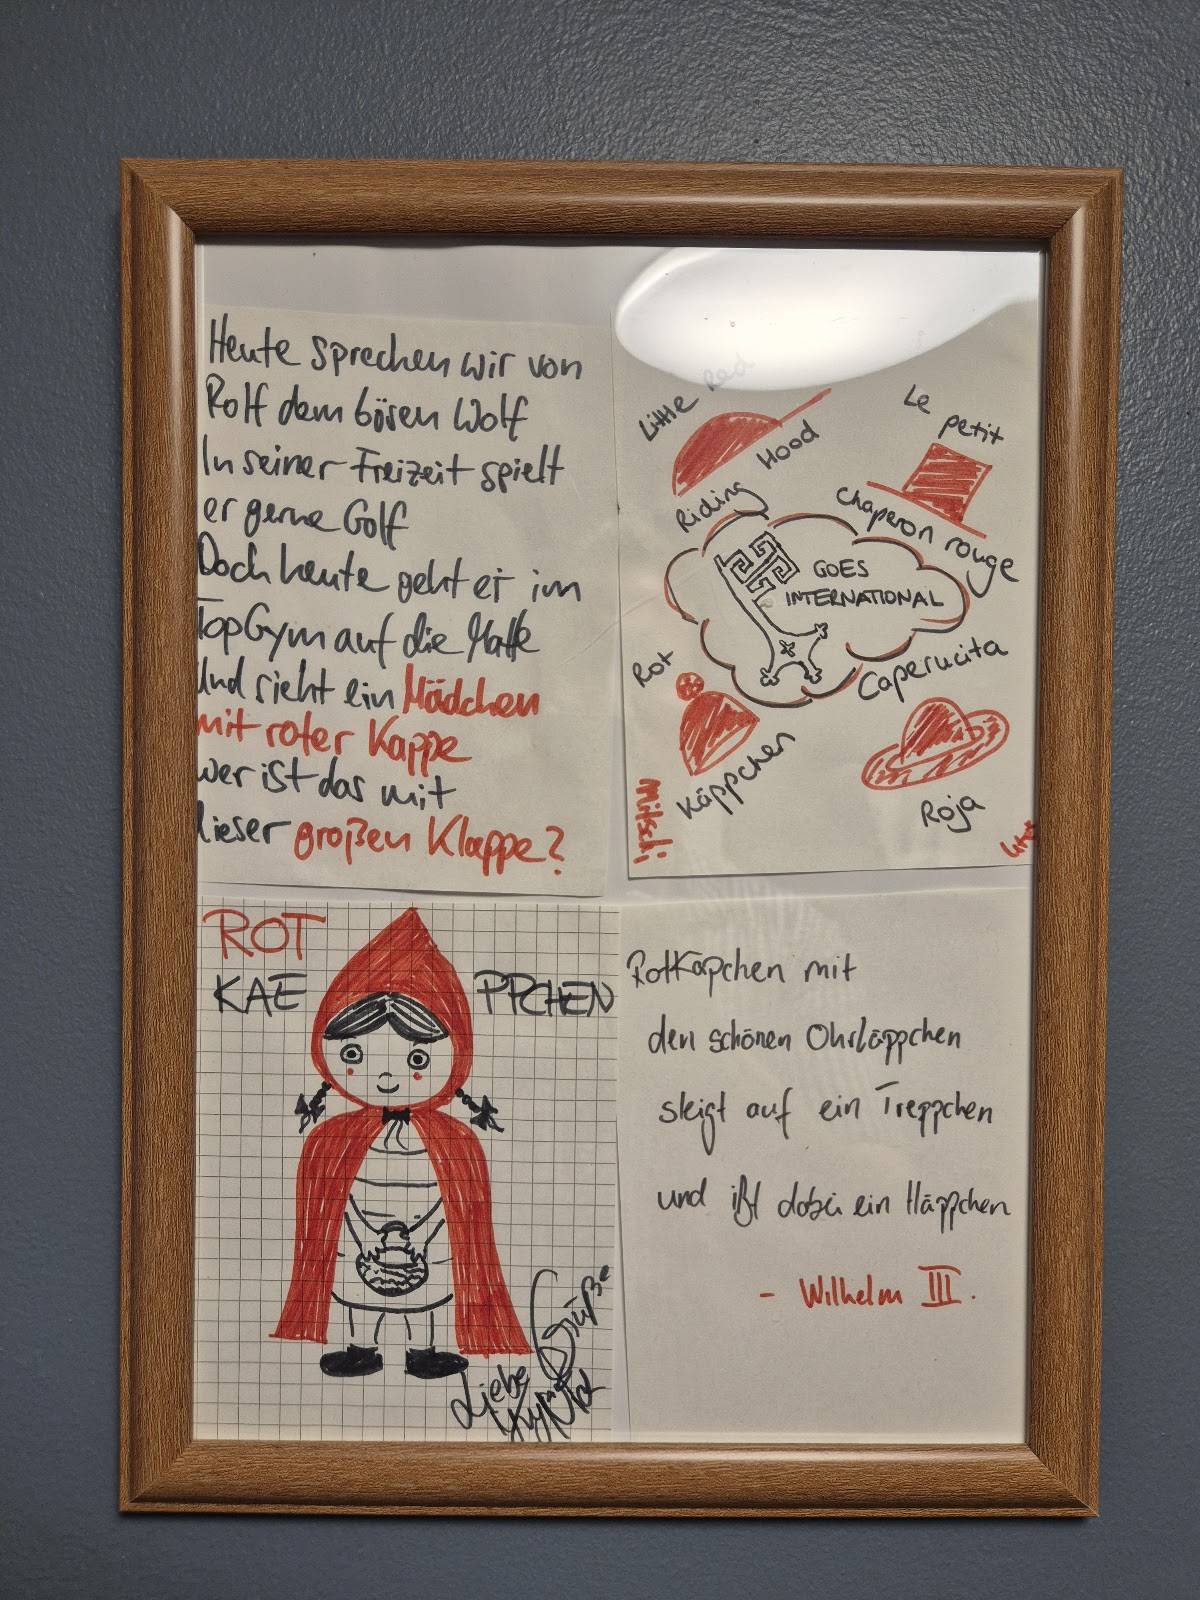 Heute sprechen wir von
Rolf dem bösen Wolf
In seiner Freizeit spielt
er gerne Golf
Doch heute geht er im
TopGym auf die Matte
Und sieht ein Mädchen
mit roter Kappe
wer ist das mit
dieser großen Klappe?
Little Red
Riding Hood
Le petit
chaperon rouge
GOES
INTERNATIONAL
Rot
Käppchen
Caperucita
Roja
mitschi
ROT
KAE PPCHEN
Liebe Grüße
Rotkäpchen mit
den schönen Ohrläppchen
steigt auf ein Treppchen
und ißt dabei ein Häppchen
- Wilhelm III.